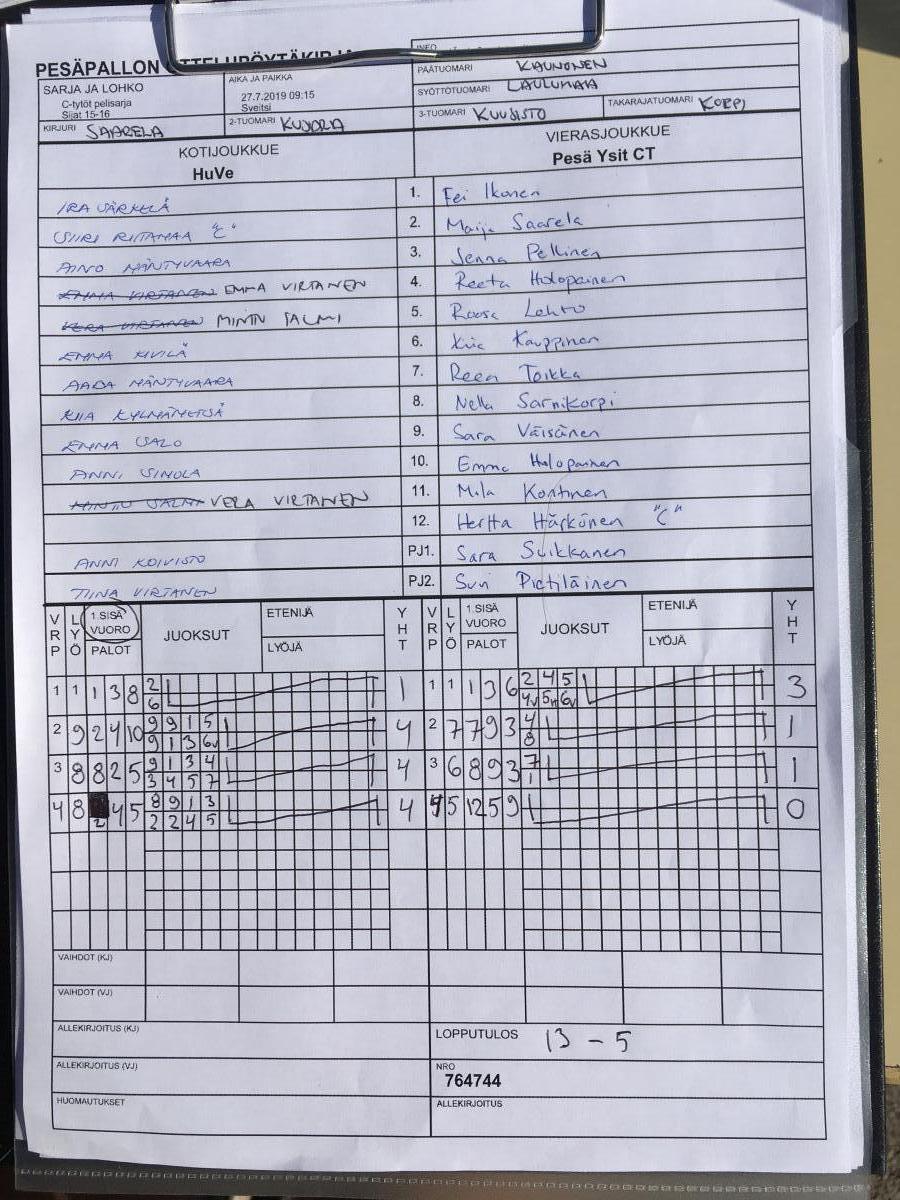 PESÄPALLON OTTELUPÖYTÄKIRJA
INFO
SARJA JA LOHKO
C-tytöt pelisarja
Sijat 15-16
AIKA JA PAIKKA
27.7.2019 09:15
Sveitsi
PÄÄTUOMARI KAUNONEN
SYÖTTÖTUOMARI LAULUMAA
KIRJURI SAARELA
2-TUOMARI KUJORA
3-TUOMARI KUUSISTO
TAKARAJATUOMARI KORPI
KOTIJOUKKUE
HuVe
VIERASJOUKKUE
Pesä Ysit CT
IRA SÄRKELÄ 1. Fei Ikonen
SIIRI RIITAMAA "C" 2. Maija Saarela
AINO MÄNTYVAARA 3. Jenna Pellinen
EMMA VIRTANEN EMMA VIRTANEN 4. Reeta Holopainen
VERA VIRTANEN MINTTU SALMI 5. Roosa Lehto
EMMA KIVILÄ 6. Kiia Kauppinen
AADA MÄNTYVAARA 7. Reea Toikka
KIIA KYLMÄMETSÄ 8. Nella Sarnikorpi
EMMA SALO 9. Sara Väisänen
ANNI SIMOLA 10. Emma Holopainen
MINTTU SALMI VERA VIRTANEN 11. Mila Kontinen
12. Hertta Härkönen "C"
ANNI KOIVISTO PJ1. Sara Suikkanen
TIINA VIRTANEN PJ2. Suvi Pietiläinen
VRP LYÖ 1.SISÄ VUORO PALOT JUOKSUT ETENIJÄ LYÖJÄ YHT VRP LYÖ 1.SISÄ VUORO PALOT JUOKSUT ETENIJÄ LYÖJÄ YHT
1 1 1 3 8 2 1 1 1 1 3 6 2 4 5 3
6 4v 5v 6v
2 9 2 4 10 9 9 1 5 4 2 7 7 9 3 4 1
9 1 3 6v 8
3 8 8 2 5 9 1 3 4 4 3 6 8 9 3 7 1
3 4 5 7 1
4 8 2 4 5 8 9 1 3 4 4 5 12 5 9 0
2 2 4 5
VAIHDOT (KJ)
VAIHDOT (VJ)
ALLEKIRJOITUS (KJ)
LOPPUTULOS 13 - 5
ALLEKIRJOITUS (VJ)
NRO
764744
HUOMAUTUKSET
ALLEKIRJOITUS